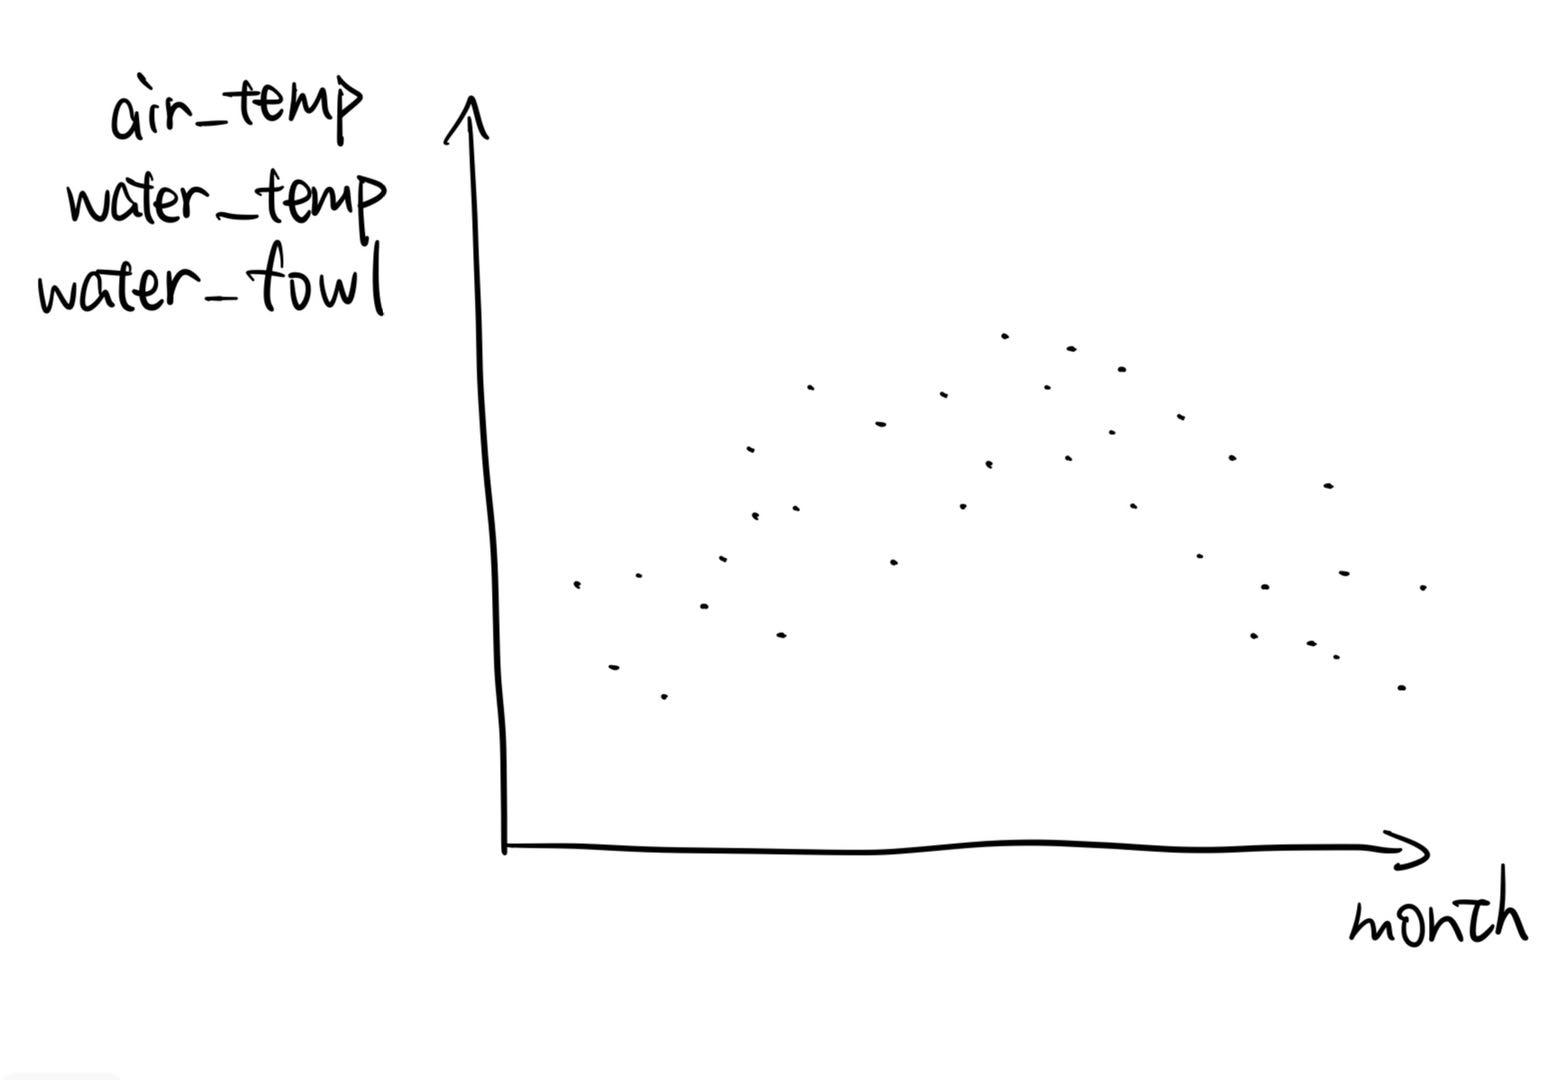 air_temp
water_temp
water_fowl
month